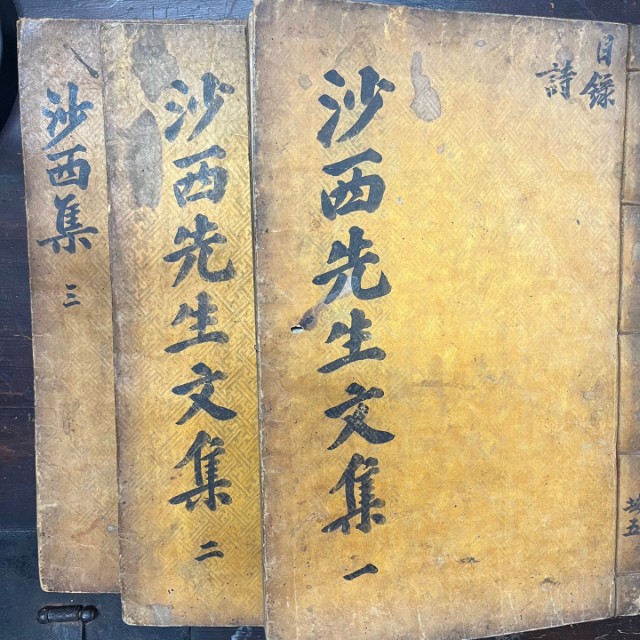 目錄
詩
沙西先生文集 一
沙西先生文集 二
沙西集 三